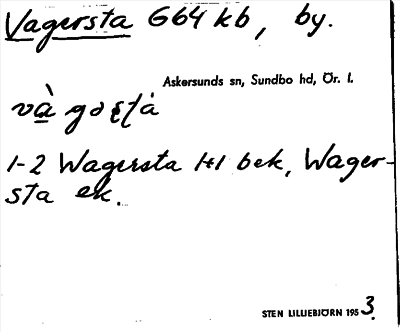 Vagersta G64 kb, by.
Askersunds sn, Sundbo hd, Ör. l.
1-2 Wagersta 1+1 bek, Wager-
sta ek.
STEN LILLIEBJÖRN 1953.